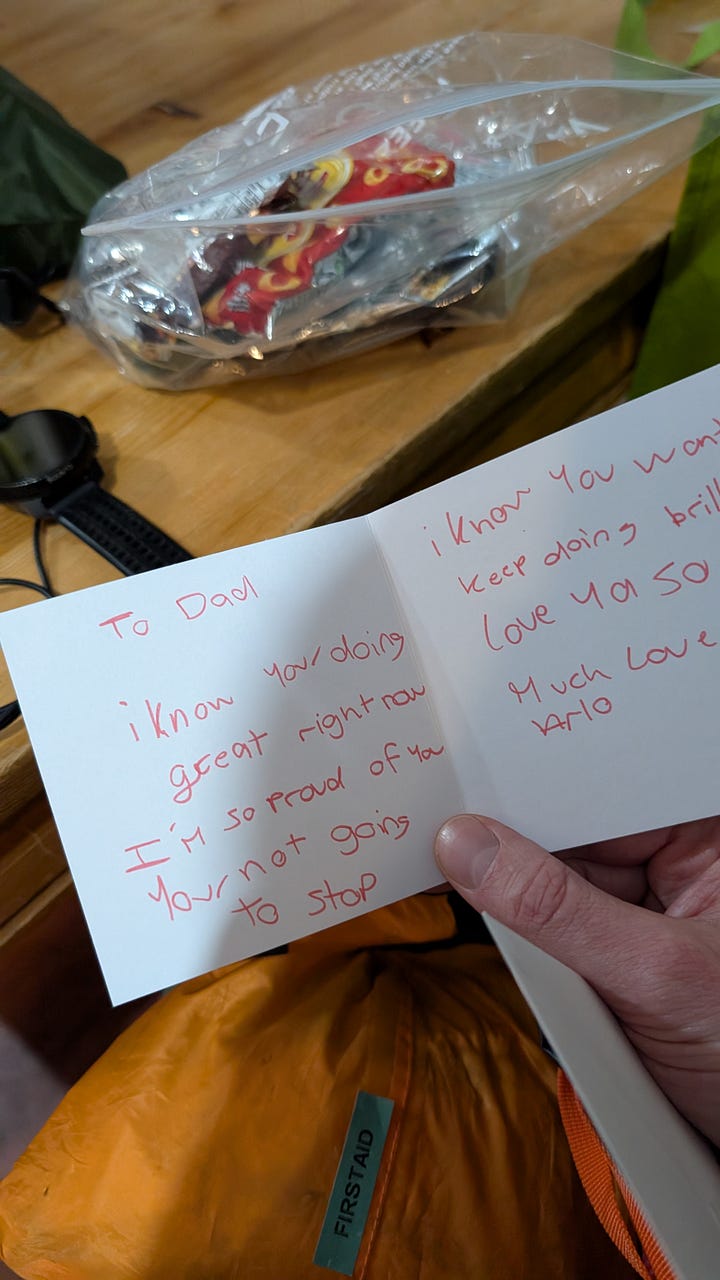 To Dad
i know your doing
great right now
I'm so proud of you
Your not going
to stop
i know you want
keep doing
love ya so
Much Love
Arlo
FIRST AID